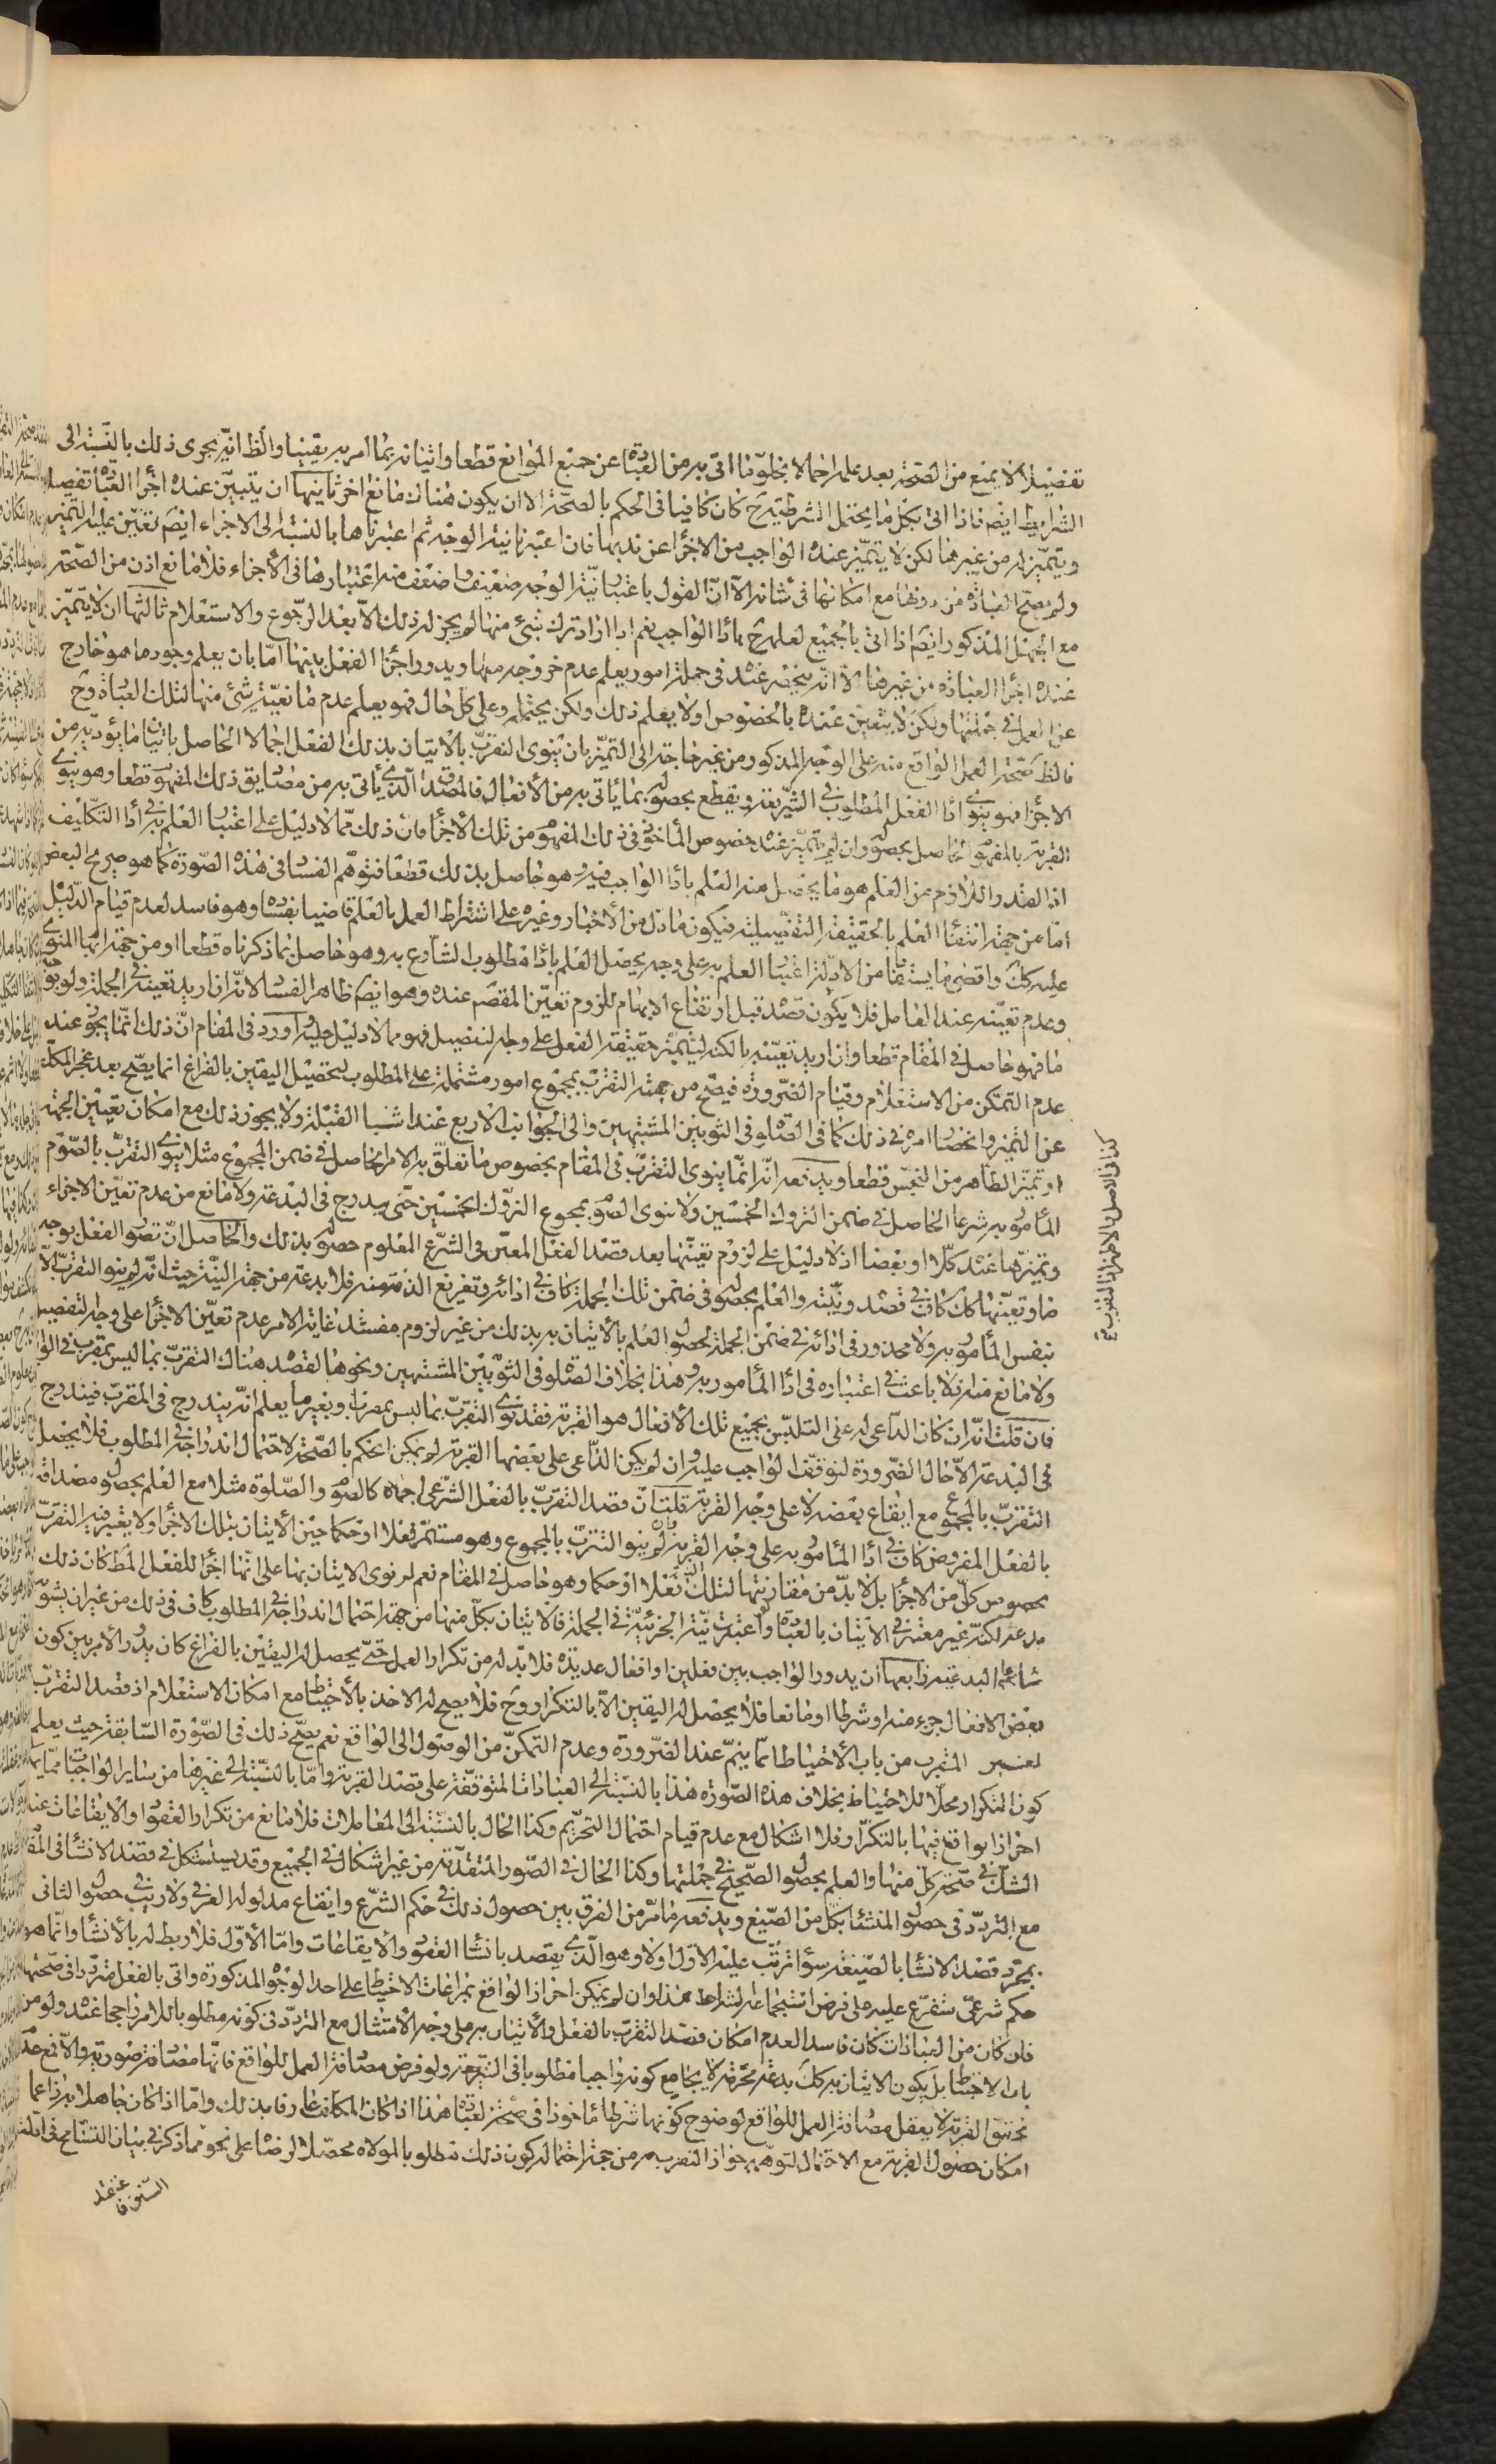 تفضيلا لا يمنع من الصحة بعد علمه اجمالا بخلو ما اتى به من العبادة عن جميع الموانع قطعا واتيانه بما امر به يقينا والظ انه يجرى ذلك بالنسبة الى
الشرايط ايضم فاذا اتى بكل ما يحتمل الشرطية ح كان كافيا فى الحكم بالصحة الا ان يكون هناك مانع اخر ثانيها ان يتبين عنده اجزاء العبادة تفصيلا
ويتميز له من غيرها لكن لا يتميز عنده الواجب من الاجزاء عن ندبها فان اعتبرنا نية الوجه ثم اعتبرناها بالنسبة الى الاجزاء ايضم تعين عليه التميز
ولم يصح العبادة من دونها مع امكانها فى شانه الا ان القول باعتبار نية الوجه ضعيف واضعف منه اعتبارها فى الاجزاء فلا مانع اذن من الصحة
مع الجهل المذكور ايضم اذا اتى بالجميع لعلمه ح باداء الواجب نعم اذا اراد ترك شئ منها لم يجز له ذلك الا بعد الرجوع والاستعلام ثالثها ان لا يتميز
عنده اجزاء العبادة من غيرها الا انه ينحصر عنده فى جملة امور يعلم عدم خروجه منها ويدور اجزاء الفعل بينها اما بان يعلم وجود ما هو خارج
عن العمل فى جملتها ولكن لا يتعين عنده بالخصوص او لا يعلم ذلك ولكن يحتمله وعلى كل حال فهو يعلم عدم مانعية شئ منها لتلك العبادة وح
فالظ صحة العمل الواقع منه على الوجه المذكور من غير حاجة الى التميز بان ينوى التقرب بالاتيان بذلك الفعل اجمالا الحاصل باتيان ما يؤديه من
الاجزاء فهو ينوى اداء الفعل المطلوب فى الشريعة ويقطع بحصوله بما ياتى به من الافعال فالمقصد الذى ياتى به من مصاديق ذلك المفهوم قطعا وهو ينوى
القربة بالمفهوم الحاصل بحصوله وان لم يتميز عنده خصوص الماخوذ فى ذلك المفهوم من تلك الاجزاء فان ذلك مما لا دليل على اعتبار العلم به فى اداء التكليف
اذ القدر اللازم من العلم هو ما يحصل منه العلم باداء الواجب فيه وهو حاصل بذلك قطعا فتوهم الفساد فى هذه الصورة كما هو صريح البعض
اما من جهة انتفاء العلم بالحقيقة التفصيلية فيكون ما دل من الاخبار وغيره على اشتراط العمل بالعلم قاضيا بفساده وهو فاسد لعدم قيام الدليل
عليه كك واقصى ما يستفاد من الادلة اعتبار العلم به على وجه يحصل العلم باداء مطلوب الشارع به وهو حاصل بما ذكرناه قطعا او من جهة ابهام المنوى
وعدم تعينه عند العامل فلا يكون قصد قبل ارتفاع الابهام للزوم تعين المقصم عنده وهو ايضم ظاهر الفساد لانه ان اريد تعينه فى الجملة ولو بوجه
ما فهو حاصل فى المقام قطعا وان اريد تعينه بالكنه ليتميز حقيقة الفعل على وجه التفصيل فهو مما لا دليل عليه وما اورد فى المقام ان ذلك انما يجوز عند
عدم التمكن من الاستعلام وقيام الضرورة فيصح من جهة التقرب بمجموع امور مشتملة على المطلوب لتحصيل اليقين بالفراغ انما يصح بعد عجز المكلف
عن التميز وانحصار امره فى ذلك كما فى الصلوة فى الثوبين المشتبهين والى الجوانب الاربع عند اشتباه القبلة ولا يجوز ذلك مع امكان تعيين الجهة
او تميز الطاهر من النجس قطعا ويدفعه انه انما ينوى التقرب فى المقام بخصوص ما تعلق به الامر الحاصل فى ضمن المجموع مثلا ينوى التقرب بالصوم
المأمور به شرعا الحاصل فى ضمن التروك الخمسين ولا ينوى الصوم بمجموع التروك الخمسين حتى يندرج فى البدعة ولا مانع من عدم تعين الاجزاء
وتميزها عنده كلا او بعضا اذ لا دليل على لزوم تعينها بعد قصد الفعل المعين فى الشرع المعلوم حصوله بذلك والحاصل ان تصور الفعل بوجه
ما وتعينها كك كاف فى قصده ونيته والعلم بحصوله فى ضمن تلك الجملة كاف فى ادائه وتفريغ الذمة منه فلا بدعة من جهة النية حيث انه لم ينو التقرب الا
بنفس المأمور به ولا محذور فى ادائه فى ضمن الجملة لحصول العلم بالاتيان به بذلك من غير لزوم مفسدة غاية الامر عدم تعين الاجزاء على وجه التفصيل
ولا مانع منه اذ لا باعث فى اعتباره فى اداء المأمور به وهذا بخلاف الصلوة فى الثوبين المشتبهين ونحوها لقصده هناك التقرب بما ليس بمقرب فى الواقع
فان قلت انه ان كان الداعى له على التلبس بجميع تلك الافعال هو القربة فقد نوى التقرب بما ليس بمقرب وبغير ما يعلم انه يندرج فى المقرب فيندرج
فى البدعة الا حال الضرورة لتوقف الواجب عليه وان لم يكن الداعى على بعضها القربة لم يمكن الحكم بالصحة لاحتمال اندراجه فى المطلوب فلا يحصل
التقرب بالمجموع مع ايقاع بعضه لا على وجه القربة قلت ان قصد التقرب بالفعل الشرعى اجمالا كالصوم والصلوة مثلا مع العلم بحصول مصداقه
بالفعل المفروض كاف فى اداء المأمور به على وجه القربة وان لم ينو التقرب بالمجموع وهو مستمر فعلا او حكما حين الاتيان بتلك الاجزاء ولا يعتبر فيه التقرب
بخصوص كل من الاجزاء بل لا بد من مقارنتها لتلك النية فعلا او حكما وهو حاصل فى المقام نعم لو نوى الاتيان بها على انها اجزاء للفعل المط كان ذلك
بدعة لكنه غير معتبر فى الاتيان بالعبادة ولو اعتبرت نية الجزئية فى الجملة فالاتيان بكل منها من جهة احتمال اندراجه فى المطلوب كاف فى ذلك من غير ان يشوبه
شائبة البدعية رابعها ان يدور الواجب بين فعلين او افعال عديدة فلا بد له من تكرار العمل حتى يحصل له اليقين بالفراغ كان يدور الامر بين كون
بعض الافعال جزء منه او شرطا او مانعا فلا يحصل له اليقين الا بالتكرار وح فلا يصح له الاخذ بالاحتياط مع امكان الاستعلام اذ قصد التقرب
لغير المقرب من باب الاحتياط انما يتم عند الضرورة وعدم التمكن من الوصول الى الواقع نعم يصح ذلك فى الصورة السابقة حيث يعلم
كون التكرار محلا للاحتياط بخلاف هذه الصورة هذا بالنسبة الى العبادات المتوقفة على قصد القربة واما بالنسبة الى غيرها من ساير الواجبات مما يمكن
احراز الواقع فيها بالتكرار فلا اشكال مع عدم قيام احتمال التحريم وكذا الحال بالنسبة الى المعاملات فلا مانع من تكرار العقود والايقاعات عند
الشك فى صحة كل منها والعلم بحصول الصحيح فى جملتها وكذا الحال فى الصور المتقدمة من غير اشكال فى الجميع وقد يستشكل فى قصد الانشاء فى المقام
مع التردد فى حصول المنشأ بكل من الصيغ ويدفعه ما مر من الفرق بين حصول ذلك فى حكم الشرع وايقاع مدلوله العرفى ولا ريب فى حصول الثانى
بمجرد قصد الانشاء بالصيغة سواء ترتب عليه الاول اولا وهو الذى يقصد بانشاء العقود والايقاعات واما الاول فلا ربط له بالانشاء وانما هو
حكم شرعى متفرع عليه على فرض استجماعه لشرايط هذا وان لم يمكن احراز الواقع بمراعات الاحتياط على احد الوجوه المذكورة واتى بالفعل مترددا فى صحته
فان كان من العبادات كان فاسدا لعدم امكان قصد التقرب بالفعل والاتيان به على وجه الامتثال مع التردد فى كونه مطلوبا للامر راجحا عنده ولو من
باب الاحتياط بل يكون الاتيان به كك بدعة محرمة فلا يجامع كونه واجبا مطلوبا فى الشريعة ولو فرض مصادفة العمل للواقع فانها مصادفة صورية والا فمع عدم
تحقق القربة لا يعقل مصادفة العمل للواقع لوضوح كونها شرطا مأخوذا فى صحة العبادة هذا اذا كان المكلف عارفا بذلك واما اذا كان جاهلا به زاعما
امكان حصول القربة مع الاحتمال لتوهمه جواز التقرب به من جهة احتماله كون ذلك مطلوبا لمولاه محصلا لرضاه على نحو ما ذكر فى بيان التسامح فى ادلة
السنن فا
كذا فى الاصل